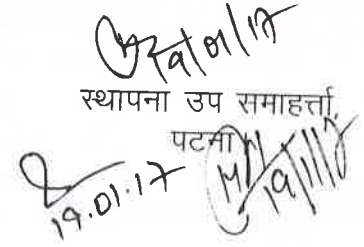 19/01/17
स्थापना उप समाहर्त्ता,
पटना
19.01.17
19/1/17